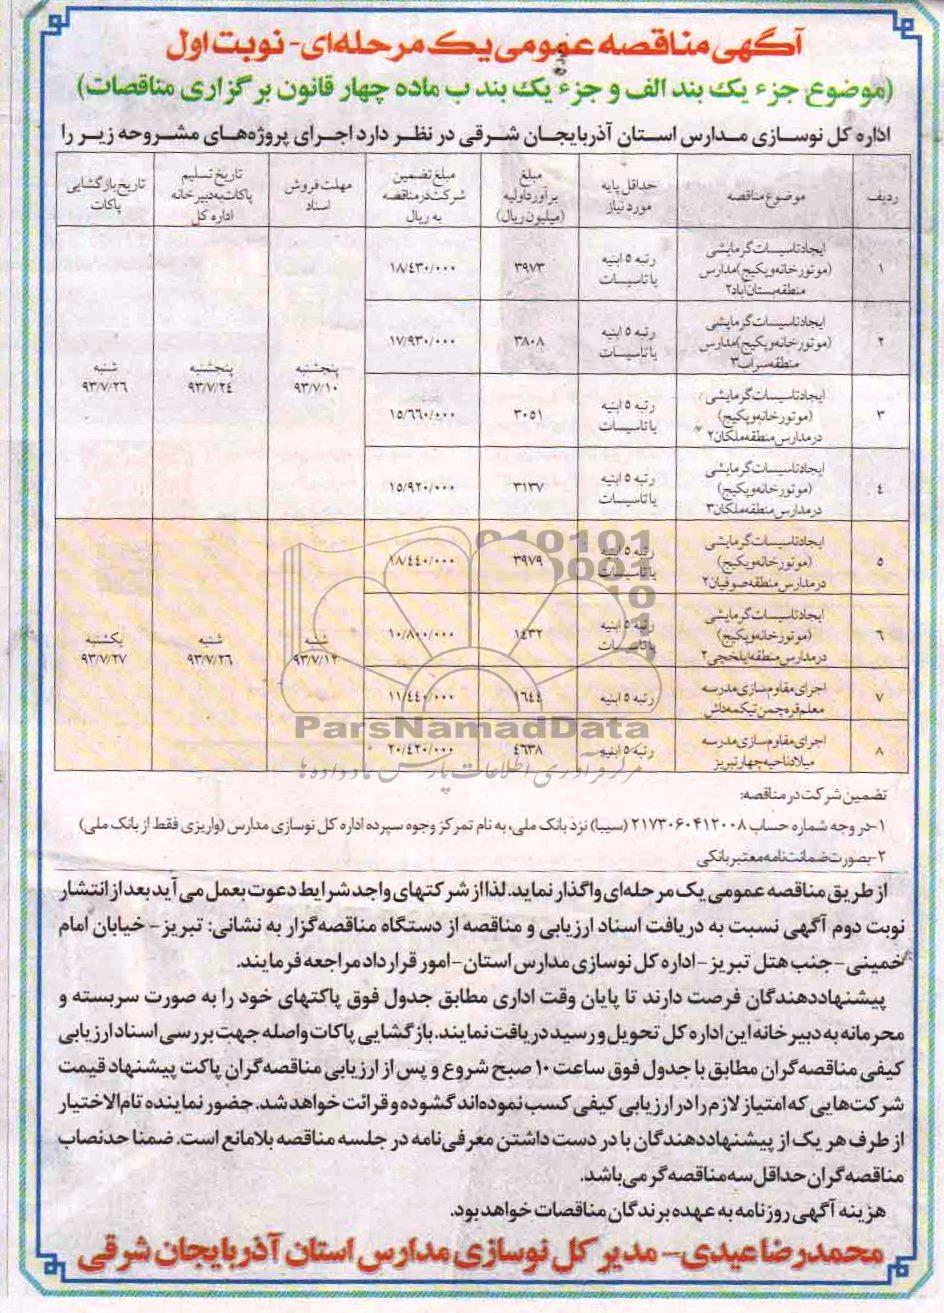 آگهی مناقصه عمومی یک مرحله‌ای- نوبت اول
(موضوع جزء یک بند الف و جزء یک بند ب ماده چهار قانون برگزاری مناقصات)
اداره کل نوسازی مدارس استان آذربایجان شرقی در نظر دارد اجرای پروژه‌های مشروحه زیر را
ردیف
موضوع مناقصه
حداقل پایه
مورد نیاز
مبلغ
برآورد اولیه
(میلیون ریال)
مبلغ تضمین
شرکت در مناقصه
به ریال
مهلت فروش
اسناد
تاریخ تسلیم
پاکات به دبیرخانه
اداره کل
تاریخ بازگشایی
پاکات
۱
ایجاد تاسیسات گرمایشی
(موتورخانه و پکیج) مدارس
منطقه بستان آباد۲
رتبه ۵ ابنیه
یا تاسیسات
۳۹۷۳
۱۸/۴۳۰/۰۰۰
۲
ایجاد تاسیسات گرمایشی
(موتورخانه و پکیج) مدارس
منطقه سراب۳
رتبه ۵ ابنیه
یا تاسیسات
۳۸۰۸
۱۷/۹۳۰/۰۰۰
۳
ایجاد تاسیسات گرمایشی
(موتورخانه و پکیج)
در مدارس منطقه ملکان۲
رتبه ۵ ابنیه
یا تاسیسات
۳۰۵۱
۱۵/۶۶۰/۰۰۰
۴
ایجاد تاسیسات گرمایشی
(موتورخانه و پکیج)
در مدارس منطقه ملکان۳
رتبه ۵ ابنیه
یا تاسیسات
۳۱۳۷
۱۵/۹۲۰/۰۰۰
پنجشنبه
۹۳/۷/۱۰
پنجشنبه
۹۳/۷/۲۴
شنبه
۹۳/۷/۲۶
۵
ایجاد تاسیسات گرمایشی
(موتورخانه و پکیج)
در مدارس منطقه صوفیان۲
رتبه ۵ ابنیه
یا تاسیسات
۳۹۷۹
۱۸/۴۴۰/۰۰۰
۶
ایجاد تاسیسات گرمایشی
(موتورخانه و پکیج)
در مدارس منطقه ایلخچی۲
رتبه ۵ ابنیه
یا تاسیسات
۱۴۳۲
۱۰/۸۰۰/۰۰۰
۷
اجرای مقاوم سازی مدرسه
معلم قره چمن تیکمه داش
رتبه ۵ ابنیه
۱۶۴۴
۱۱/۴۴۰/۰۰۰
۸
اجرای مقاوم سازی مدرسه
میلاد ناحیه چهار تبریز
رتبه ۵ ابنیه
۴۶۳۸
۲۰/۴۲۰/۰۰۰
شنبه
۹۳/۷/۱۲
شنبه
۹۳/۷/۲۶
یکشنبه
۹۳/۷/۲۷
ParsNamadData
مرکز فرآوری اطلاعات پارس نماد داده‌ها
تضمین شرکت در مناقصه:
۱-در وجه شماره حساب ۲۱۷۳۰۶۰۴۱۲۰۰۸ (سیبا) نزد بانک ملی، به نام تمرکز وجوه سپرده اداره کل نوسازی مدارس (واریزی فقط از بانک ملی)
۲-بصورت ضمانت نامه معتبر بانکی
از طریق مناقصه عمومی یک مرحله‌ای واگذار نماید. لذا از شرکتهای واجد شرایط دعوت بعمل می آید بعد از انتشار
نوبت دوم آگهی نسبت به دریافت اسناد ارزیابی و مناقصه از دستگاه مناقصه‌گزار به نشانی: تبریز - خیابان امام
خمینی - جنب هتل تبریز - اداره کل نوسازی مدارس استان - امور قرارداد مراجعه فرمایند.
پیشنهاددهندگان فرصت دارند تا پایان وقت اداری مطابق جدول فوق پاکتهای خود را به صورت سربسته و
محرمانه به دبیرخانه این اداره کل تحویل و رسید دریافت نمایند. بازگشایی پاکات واصله جهت بررسی اسناد ارزیابی
کیفی مناقصه‌گران مطابق با جدول فوق ساعت ۱۰ صبح شروع و پس از ارزیابی مناقصه‌گران پاکت پیشنهاد قیمت
شرکت‌هایی که امتیاز لازم را در ارزیابی کیفی کسب نموده‌اند گشوده و قرائت خواهد شد. حضور نماینده تام‌الاختیار
از طرف هر یک از پیشنهاددهندگان با در دست داشتن معرفی‌نامه در جلسه مناقصه بلامانع است. ضمنا حدنصاب
مناقصه‌گران حداقل سه مناقصه‌گر می‌باشد.
هزینه آگهی روزنامه به عهده برندگان مناقصات خواهد بود.
محمدرضا عیدی - مدیر کل نوسازی مدارس استان آذربایجان شرقی